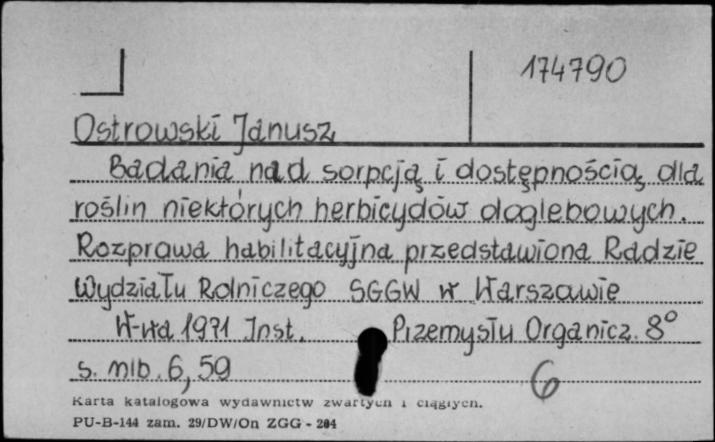 174790
Ostrowski Janusz
Badania nad sorpcją i dostępnością dla
roślin niektórych herbicydów doglebowych.
Rozprawa habilitacyjna przedstawiona Radzie
Wydziału Rolniczego SGGW w Warszawie
W-wa 1971 Inst. Przemysłu Organicz. 8°
s. nlb. 6, 59
6
Karta katalogowa wydawnictw zwartych i ciągłych.
PU-B-144 zam. 29/DW/On ZGG - 204